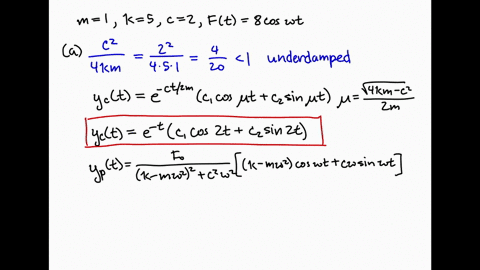 m=1, k=5, c=2, F(t) = 8 cos ωt
(a) c²/4km = 2²/4·5·1 = 4/20 < 1 underdamped
y_c(t) = e^{-ct/2m} (c₁ cos μt + c₂ sin μt) μ = √(4km-c²)/2m
y_c(t) = e^{-t} (c₁ cos 2t + c₂ sin 2t)
y_p(t) = F₀/((k-mω²)² + c²ω²) [(k-mω²) cos ωt + cω sin ωt]